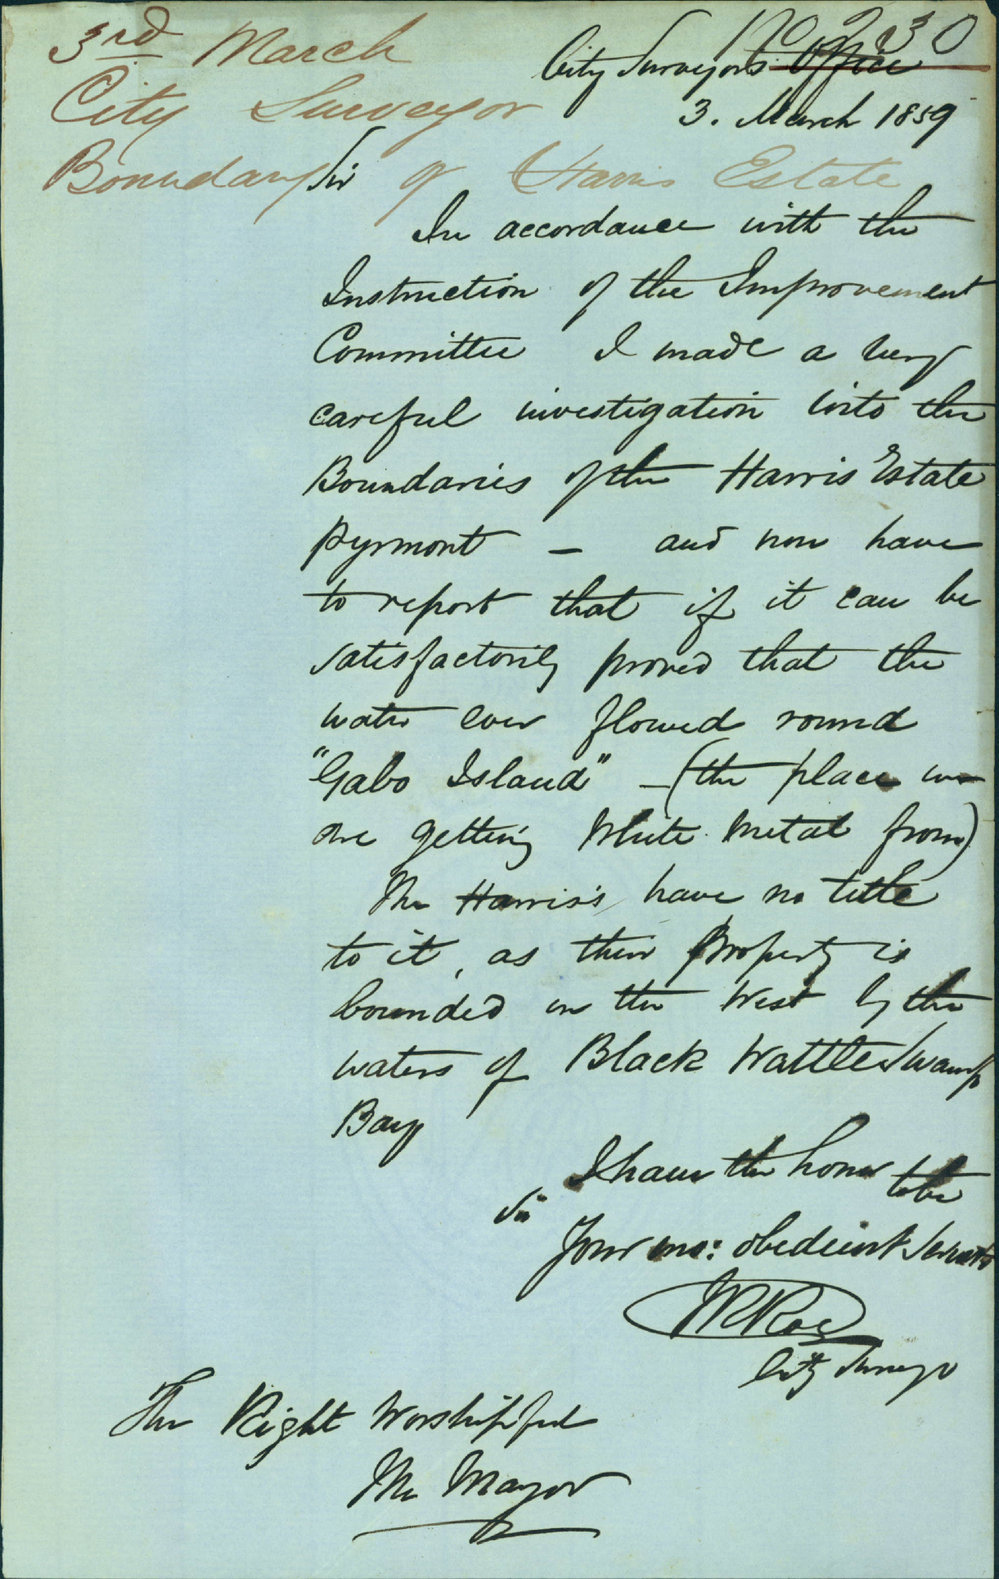 3rd March
City Surveyor
Boundary of Harris Estate
No 230
City Surveyors Office
3. March 1859
Sir
In accordance with the
Instruction of the Improvement
Committee I made a very
careful investigation into the
Boundaries of the Harris Estate
Pyrmont — and now have
to report that if it can be
satisfactorily proved that the
water ever flowed round
"Gabo Island" — (the place we
are getting White Metal from)
The Harris's have no title
to it, as their Property is
bounded on the West by the
waters of Black Wattle Swamp
Bay
I have the honor to be
Sir
Your mo: obedient Servant
City Surveyr
The Right Worshipful
The Mayor